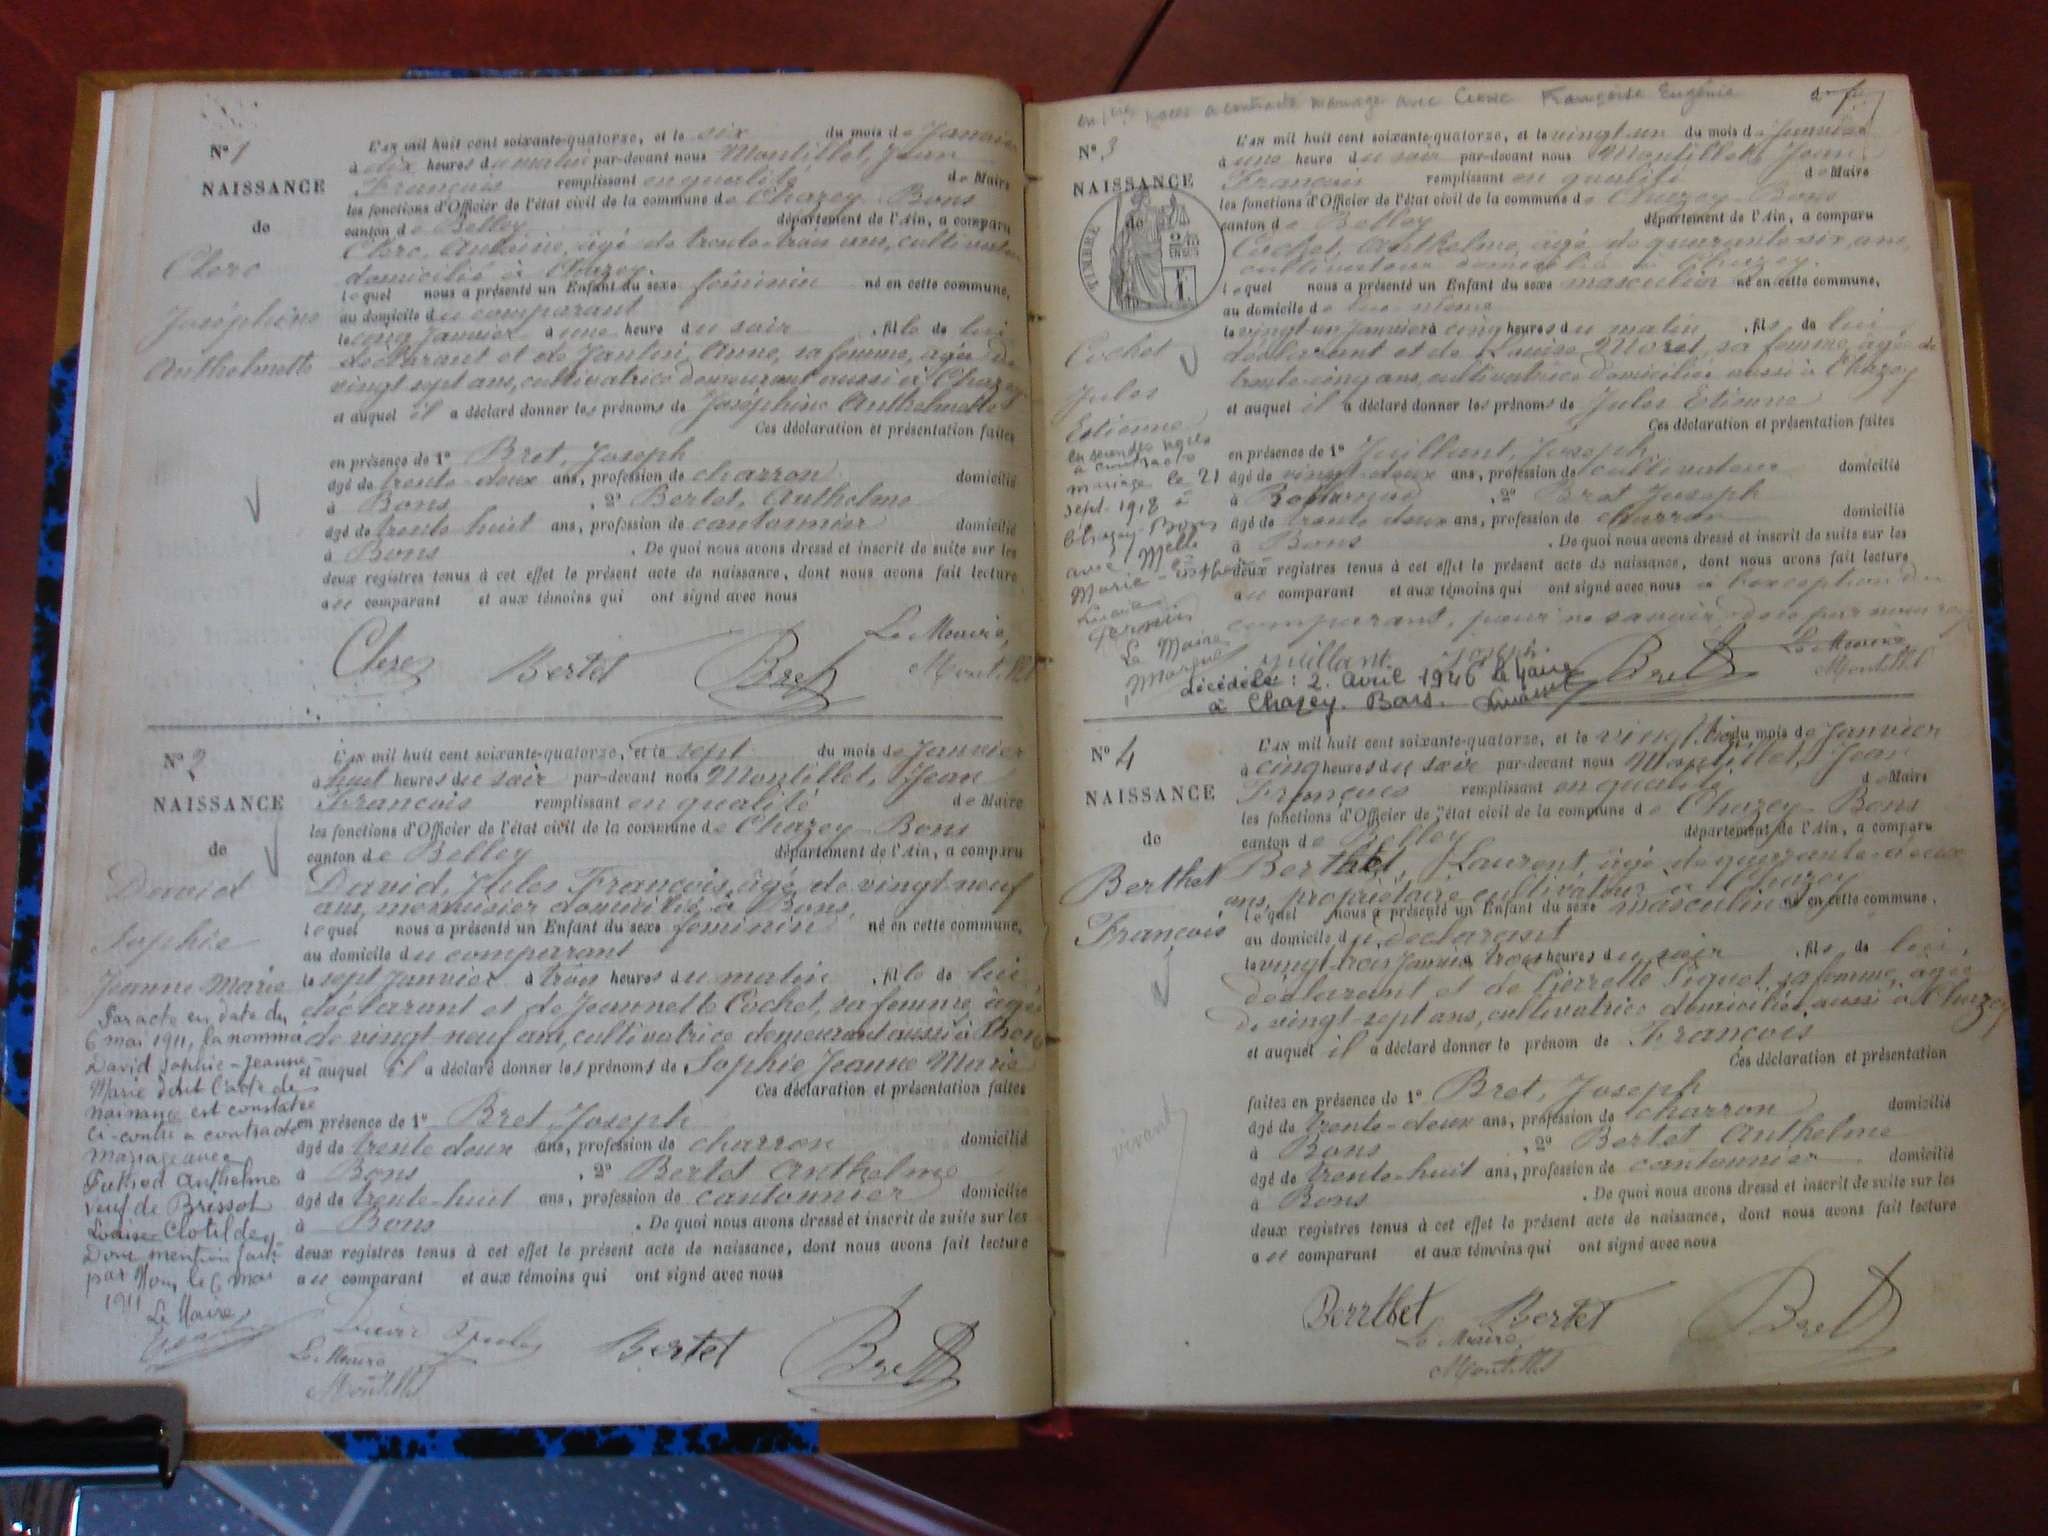 N° 1
NAISSANCE
de
Clerc
Joséphine
Anthelmette
L'AN mil huit cent soixante-quatorze, et le six du mois de Janvier
à dix heures du matin par-devant nous Montillet, Jean
François remplissant en qualité de Maire
les fonctions d'Officier de l'état civil de la commune de Chazey-Bons
canton de Belley département de l'Ain, a comparu
Clerc, Antoine, âgé de trente-trois ans, cultivateur
domicilié à Chazey.
lequel nous a présenté un Enfant du sexe féminin né en cette commune,
au domicile du comparant
le cinq Janvier à une heure du soir, fille de lui
déclarant et de Anne, sa femme, âgée de
vingt sept ans, cultivatrice demeurant aussi à Chazey
et auquel il a déclaré donner les prénoms de Joséphine Anthelmette
Ces déclaration et présentation faites
en présence de 1° Bret, Joseph
âgé de trente-deux ans, profession de charron domicilié
à Bons, 2° Bertet, Anthelme
âgé de trente huit ans, profession de cantonnier domicilié
à Bons. De quoi nous avons dressé et inscrit de suite sur les
deux registres tenus à cet effet le présent acte de naissance, dont nous avons fait lecture
au comparant et aux témoins qui ont signé avec nous
Le Maire,
Clerc Bertet Bret Montillet
N° 2
NAISSANCE
de
David
Sophie
Jeanne Marie
Par acte en date du
6 mai 1911, la nommée
David Sophie-Jeanne-
Marie dont l'acte de
naissance est constatée
ci-contre a contracté
mariage avec
Anthelme
veuf de Brissot
Louise Clotilde
Dont mention faite
par Nous, le 6 mai
1911
Le Maire
L'AN mil huit cent soixante-quatorze, et le sept du mois de Janvier
à huit heures du soir par-devant nous Montillet, Jean
François remplissant en qualité de Maire
les fonctions d'Officier de l'état civil de la commune de Chazey-Bons
canton de Belley département de l'Ain, a comparu
David, Jules François, âgé de vingt neuf
ans, menuisier domicilié à Bons,
lequel nous a présenté un Enfant du sexe féminin né en cette commune,
au domicile du comparant
le sept Janvier à trois heures du matin, fille de lui
déclarant et de Jeannette Cochet, sa femme, âgée
de vingt-neuf ans, cultivatrice demeurant aussi à Bons
et auquel il a déclaré donner les prénoms de Sophie Jeanne Marie
Ces déclaration et présentation faites
en présence de 1° Bret, Joseph
âgé de trente deux ans, profession de charron domicilié
à Bons, 2° Bertet Anthelme
âgé de trente-huit ans, profession de cantonnier domicilié
à Bons. De quoi nous avons dressé et inscrit de suite sur les
deux registres tenus à cet effet le présent acte de naissance, dont nous avons fait lecture
au comparant et aux témoins qui ont signé avec nous
David Jules Bertet Bret
Le Maire
Montillet
en noces a contracté mariage avec Clerc Françoise Eugénie
N° 3
NAISSANCE
de
TIMBRE
Cochet
Jules
Etienne
en secondes noces
a contracté
mariage le 21
sept. 1918 à
Chazey-Bons
avec Melle
Marie-
Le Maire
L'AN mil huit cent soixante-quatorze, et le vingt un du mois de Janvier
à une heure du soir par-devant nous Montillet, Jean
François remplissant en qualité de Maire
les fonctions d'Officier de l'état civil de la commune de Chazey-Bons
canton de Belley département de l'Ain, a comparu
Cochet, Anthelme, âgé de quarante six ans,
cultivateur domicilié à Chazey.
lequel nous a présenté un Enfant du sexe masculin né en cette commune,
au domicile de lui-même
le vingt un Janvier à cinq heures du matin, fils de lui
déclarant et de Louise Moret, sa femme, âgée de
trente-cinq ans, cultivatrice domiciliée aussi à Chazey
et auquel il a déclaré donner les prénoms de Jules Etienne
Ces déclaration et présentation faites
en présence de 1° Juillant, Joseph
âgé de vingt-deux ans, profession de cultivateur domicilié
à, 2° Bret Joseph
âgé de trente deux ans, profession de charron domicilié
à Bons. De quoi nous avons dressé et inscrit de suite sur les
deux registres tenus à cet effet le présent acte de naissance, dont nous avons fait lecture
au comparant et aux témoins qui ont signé avec nous à l'exception du
comparant, pour ne savoir
juillant joseph Bret Le Maire
Montillet
décédé le: 2. Avril 1946 Le Maire
à Chazey. Bons.
N° 4
NAISSANCE
de
Berthet
François
vivant
L'AN mil huit cent soixante-quatorze, et le vingt trois du mois de Janvier
à cinq heures du soir par-devant nous Montillet, Jean
François remplissant en qualité de Maire
les fonctions d'Officier de l'état civil de la commune de Chazey-Bons
canton de Belley département de l'Ain, a comparu
Berthet, Laurent, âgé de quarante-deux
ans, propriétaire cultivateur à Chazey
lequel nous a présenté un Enfant du sexe masculin né en cette commune,
au domicile du déclarant
le vingt-trois Janvier à trois heures du soir, fils de lui,
déclarant et de Pierrette Piquet, sa femme, âgée
de vingt-sept ans, cultivatrice domiciliée aussi à Chazey
et auquel il a déclaré donner le prénom de François
Ces déclaration et présentation
faites en présence de 1° Bret, Joseph
âgé de trente-deux ans, profession de charron domicilié
à Bons, 2° Bertet Anthelme
âgé de trente-huit ans, profession de cantonnier domicilié
à Bons. De quoi nous avons dressé et inscrit de suite sur les
deux registres tenus à cet effet le présent acte de naissance, dont nous avons fait lecture
au comparant et aux témoins qui ont signé avec nous
Berrthet Bertet Bret
Le Maire,
Montillet